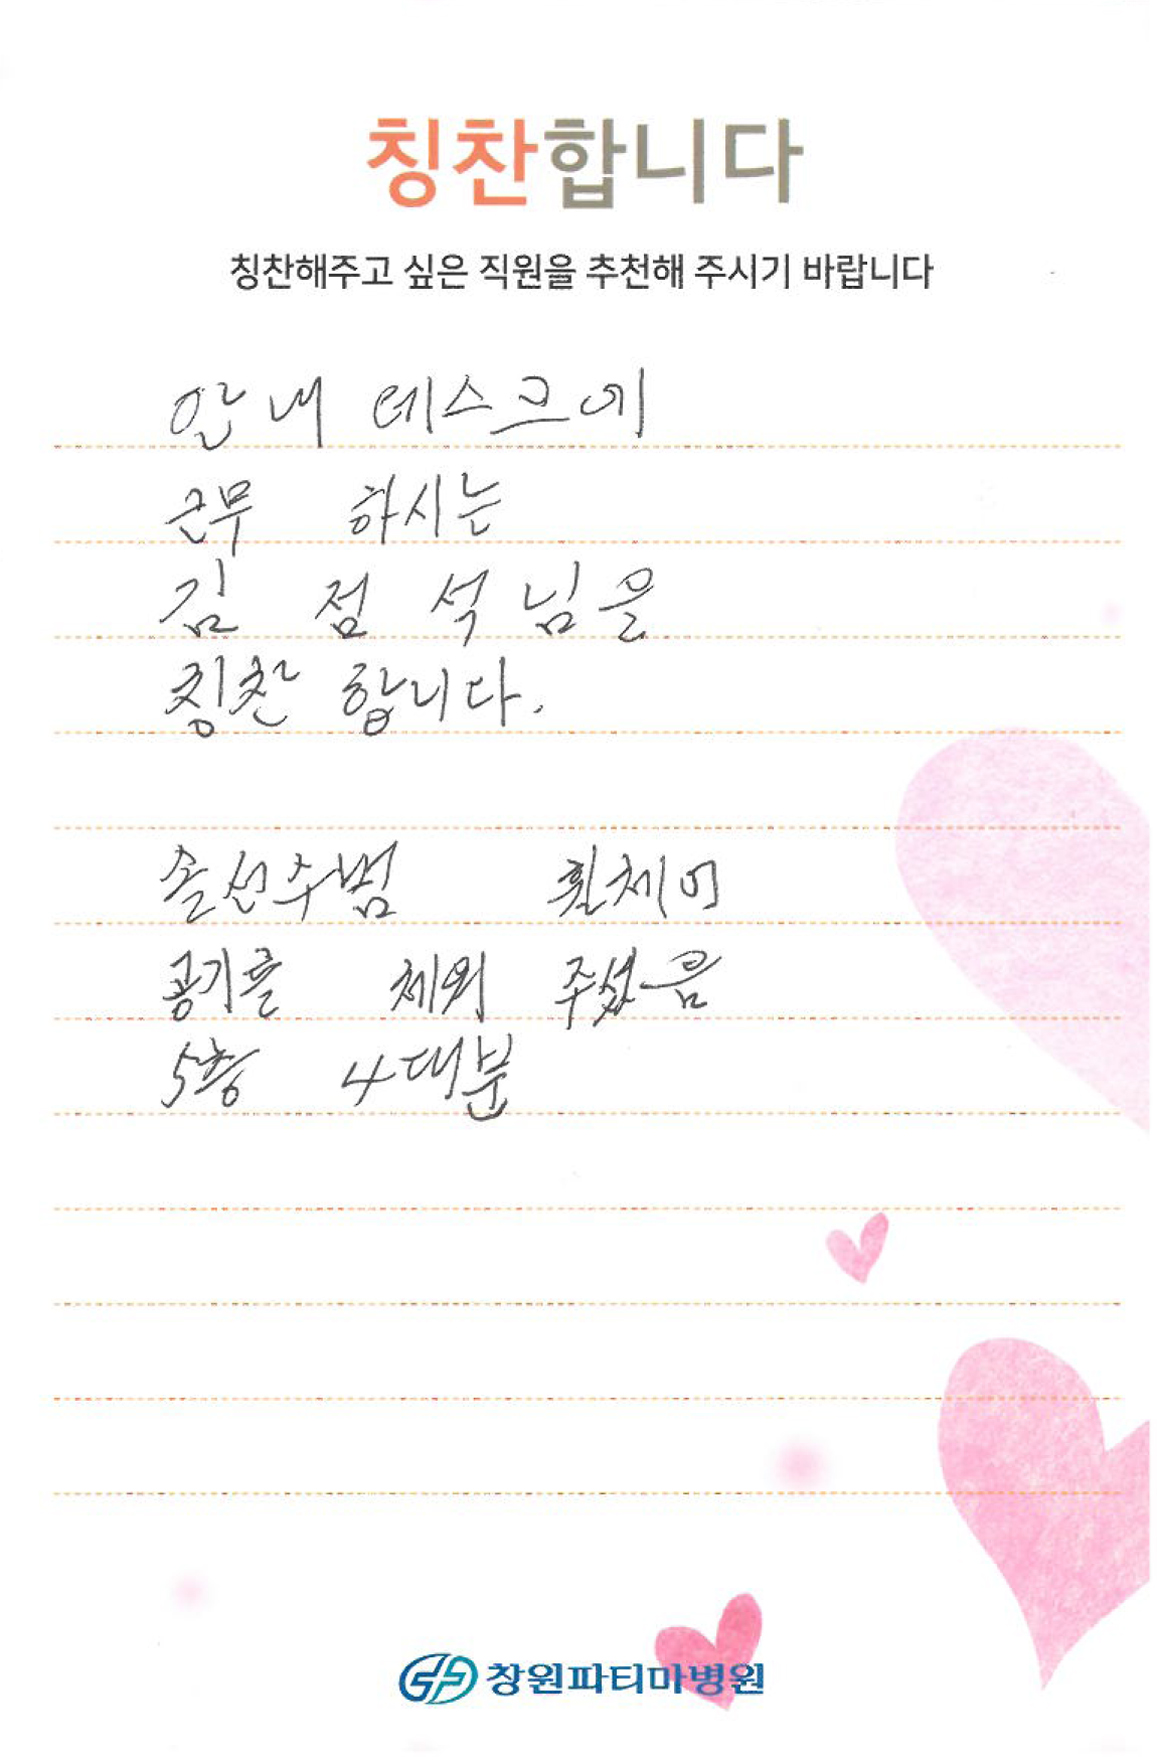 칭찬합니다
칭찬해주고 싶은 직원을 추천해 주시기 바랍니다
안내 데스크에
근무 하시는
김 점 석 님을
칭찬 합니다.
솔선수범 휠체어
공기를 체워 주셨음
5층 4대분
창원파티마병원